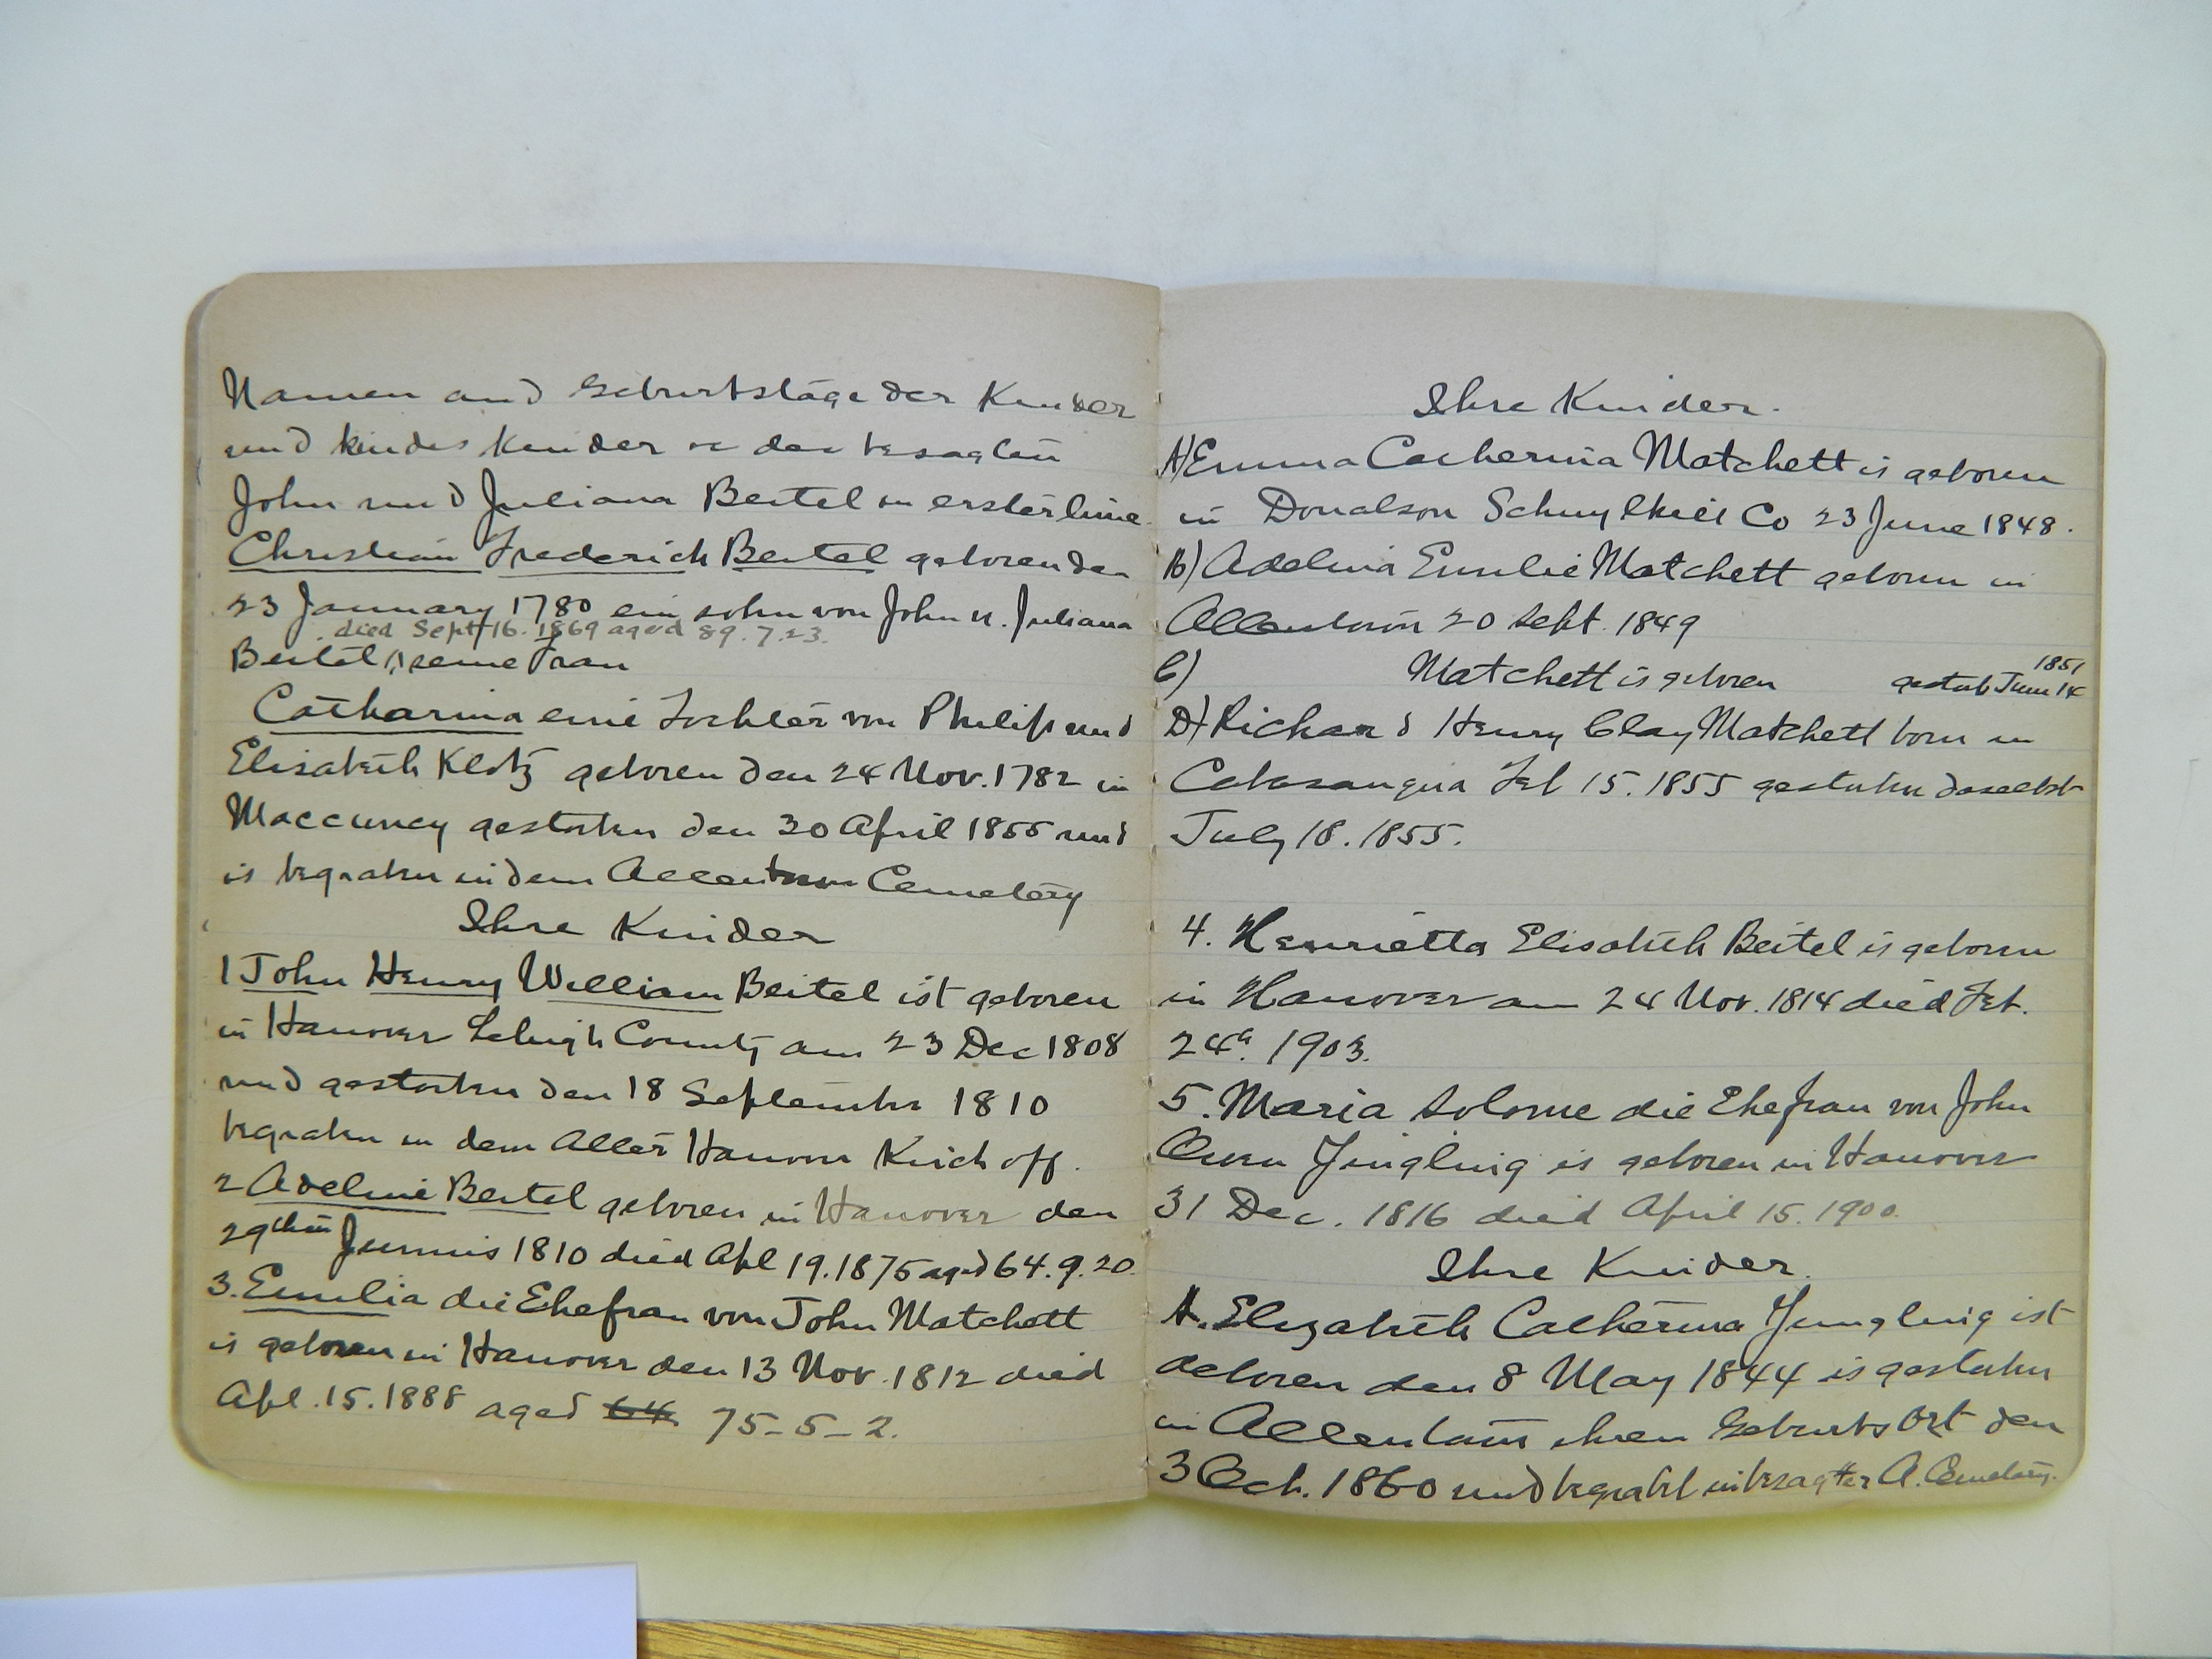 Namen and Geburtstage der Kinder
und kindes Kinder von den besagten
John und Juliana Beitel in erster linie
Christian Frederich Beitel geboren den
23 January 1780 ein sohn von John u. Juliana
died Sept 16. 1869 aged 89. 7. 23.
Beitel, seine Frau
Catharina eine Tochter von Philip und
Elisabeth Klotz geboren den 24 Nov. 1782 in
Maccuncy gestorben den 30 April 1855 und
is begraben in dem Allentown Cemetery
Ihre Kinder
1 John Henry William Beitel ist geboren
in Hanover Lehigh County am 23 Dec 1808
und gestorben den 18 September 1810
begraben in dem Alten Hanover Kirchoff.
2 Adeline Beitel geboren in Hanover den
29ten Junius 1810 died Apl 19. 1875 aged 64. 9. 20.
3. Emilia die Ehefrau von John Matchett
is geboren in Hanover den 13 Nov. 1812 died
Apl. 15. 1888 aged 64 75-5-2.
Ihre Kinder.
A) Emma Catherina Matchett is geboren
in Donalson Schuylkill Co 23 June 1848.
B) Adelina Emilie Matchett geboren in
Allentown 20 Sept. 1849
C) Matchett is geboren gestorb June 14 1851
D) Richard Henry Clay Matchett born in
Catasauqua Feb 15. 1855 gestorben daselbst
July 18. 1855.
4. Henrietta Elisabeth Beitel is geboren
in Hanover am 24 Nov. 1814 died Feb.
24th. 1903.
5. Maria Solome die Ehefrau von John
Owen Jingling is geboren in Hanover
31 Dec. 1816 died April 15. 1900.
Ihre Kinder.
A. Elizabeth Catherina Jungling ist
geboren den 8 May 1844 is gestorben
in Allentown ihren Geburts Ort den
3 Oct. 1860 und begrabt in besagter A. Cemetery.